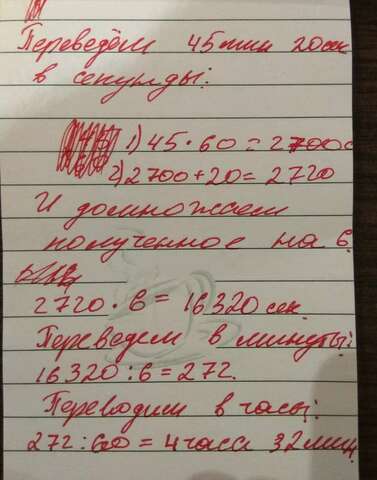 Переведём 45 мин 20 сек
в секунды:
1) 45 · 60 = 2700 с
2) 2700 + 20 = 2720
И домножаем
полученное на 6.
2720 · 6 = 16320 сек.
Переведем в минуты:
16320 : 6 = 272.
Переводим в часы:
272 : 60 = 4 часа 32 мин